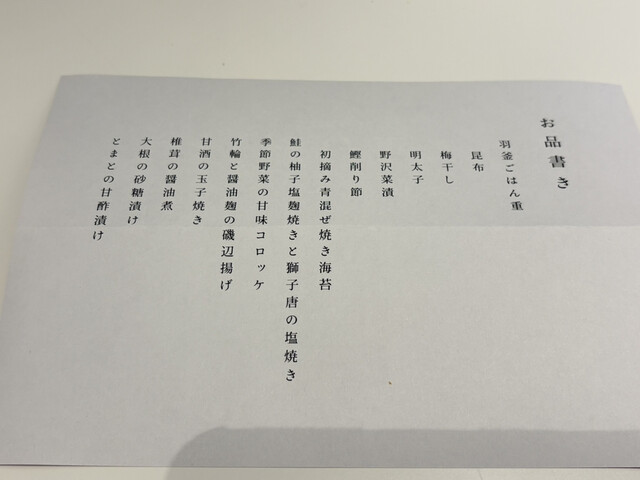 お品書き
羽釜ごはん重
昆布
梅干し
明太子
野沢菜漬
鰹削り節
初摘み青混ぜ焼き海苔
鮭の柚子塩麹焼きと獅子唐の塩焼き
季節野菜の甘味コロッケ
竹輪と醤油麹の磯辺揚げ
甘酒の玉子焼き
椎茸の醤油煮
大根の砂糖漬け
とまとの甘酢漬け